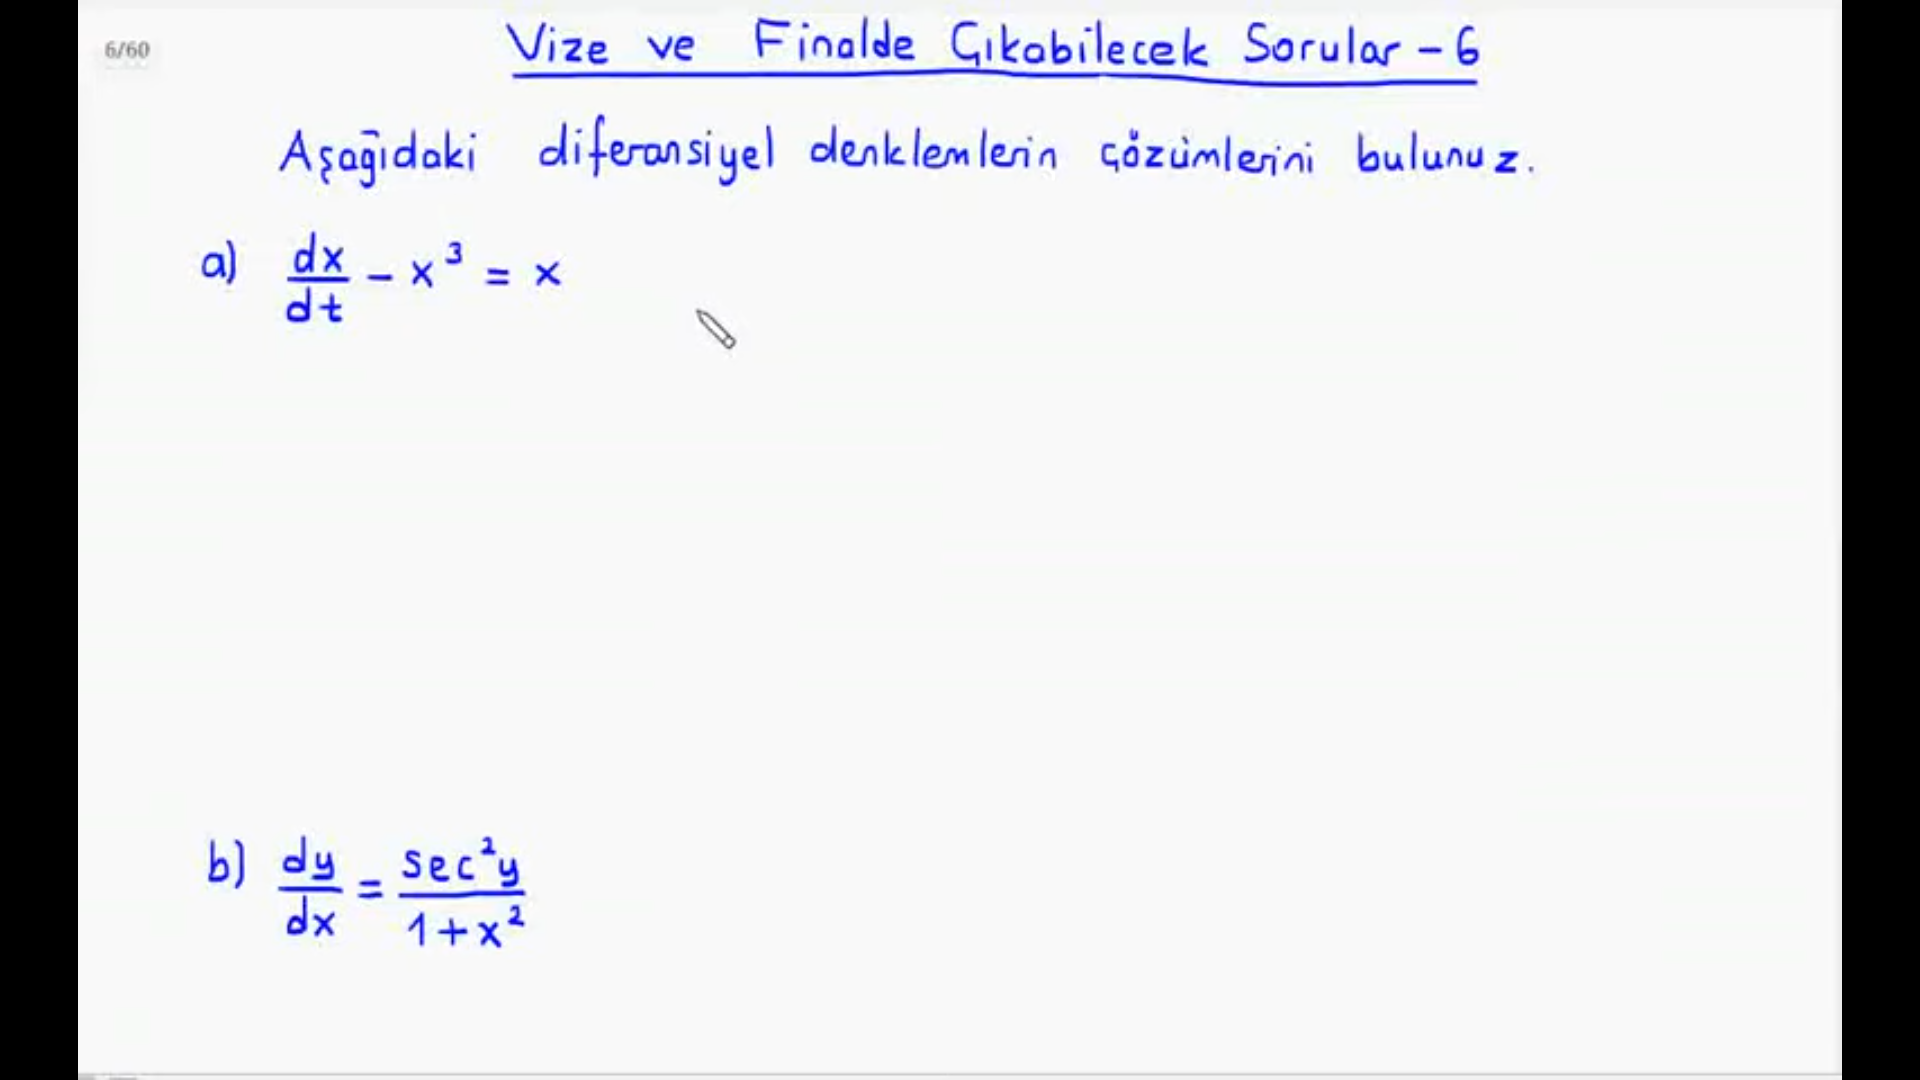 6/60
Vize ve Finalde Çıkabilecek Sorular - 6
Aşağıdaki diferansiyel denklemlerin çözümlerini bulunuz.
a) dx/dt - x³ = x
b) dy/dx = sec²y/1+x²